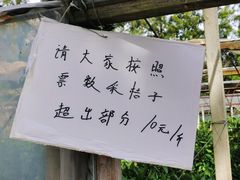 请大家按照
票数采桔子
超出部分 10元/斤